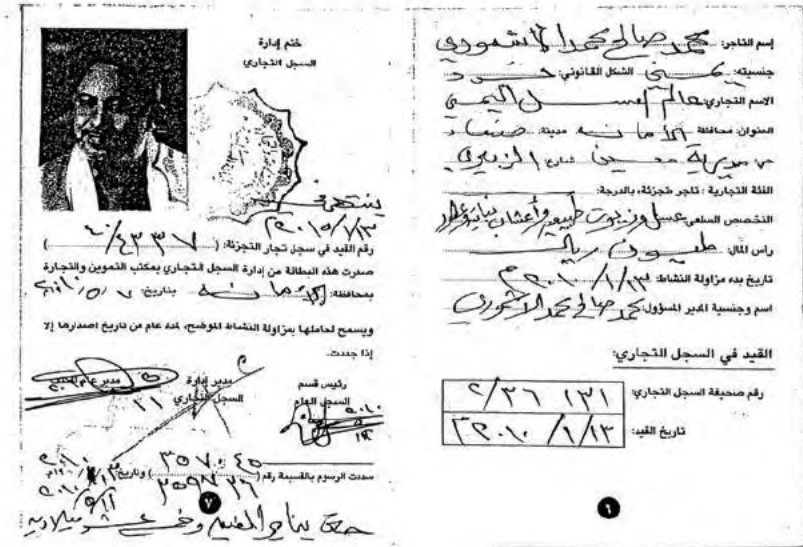 إسم التاجر: محمد صالح محمد الأشموري
جنسيته: يمني الشكل القانوني: فرد
الاسم التجاري: عالم العسل اليمني
العنوان: محافظة: الأمانة مدينة: صنعاء
مديرية معين شارع الزبيري
الفئة التجارية: تاجر تجزئة، بالدرجة:
التخصص السلعي: عسل وزيوت طبيعية وأعشاب
راس المال: مليون ريال
تاريخ بدء مزاولة النشاط: ٢٠١٠/١/١٣م
اسم وجنسية المدير المسؤول: محمد صالح محمد الاشموري
القيد في السجل التجاري:
رقم صحيفة السجل التجاري: ١٣١ ٢/٣٦
تاريخ القيد: ٢٠١٠/١/١٣م
٦
ختم إدارة
السجل التجاري
ينتهي في
٢٠١٥/١/١٣م
رقم القيد في سجل تجار التجزئة: (٤٣٣٧)
صدرت هذه البطاقة من إدارة السجل التجاري بمكتب التموين والتجارة
بمحافظة: الأمانة بتاريخ:
ويسمح لحاملها بمزاولة النشاط الموضح، لمدة عام من تاريخ اصدارها إلا
إذا جددت.
رئيس قسم مدير إدارة مدير عام المكتب
السجل الهام السجل التجاري
سددت الرسوم بالقسيمة رقم ( ٣٥٧٠٤٥ ) وتاريخ
٧